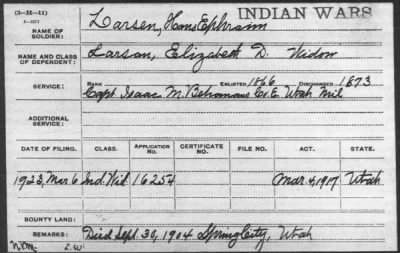 (3-21-11)
INDIAN WARS
NAME OF SOLDIER: Larsen, Hans Ephraim
NAME AND CLASS OF DEPENDENT: Larson, Elizabeth D. Widow
SERVICE: RANK ENLISTED 1866 DISCHARGED 1873
Capt Isaac M. Behunans Co. E. Utah Mil
ADDITIONAL SERVICE:
DATE OF FILING. CLASS. APPLICATION No. CERTIFICATE NO. FILE NO. ACT. STATE.
1923, Mar 6 Ind Wid 16254 Mar. 4, 1917 Utah
BOUNTY LAND:
REMARKS: Died Sept. 30, 1904 Spring City, Utah